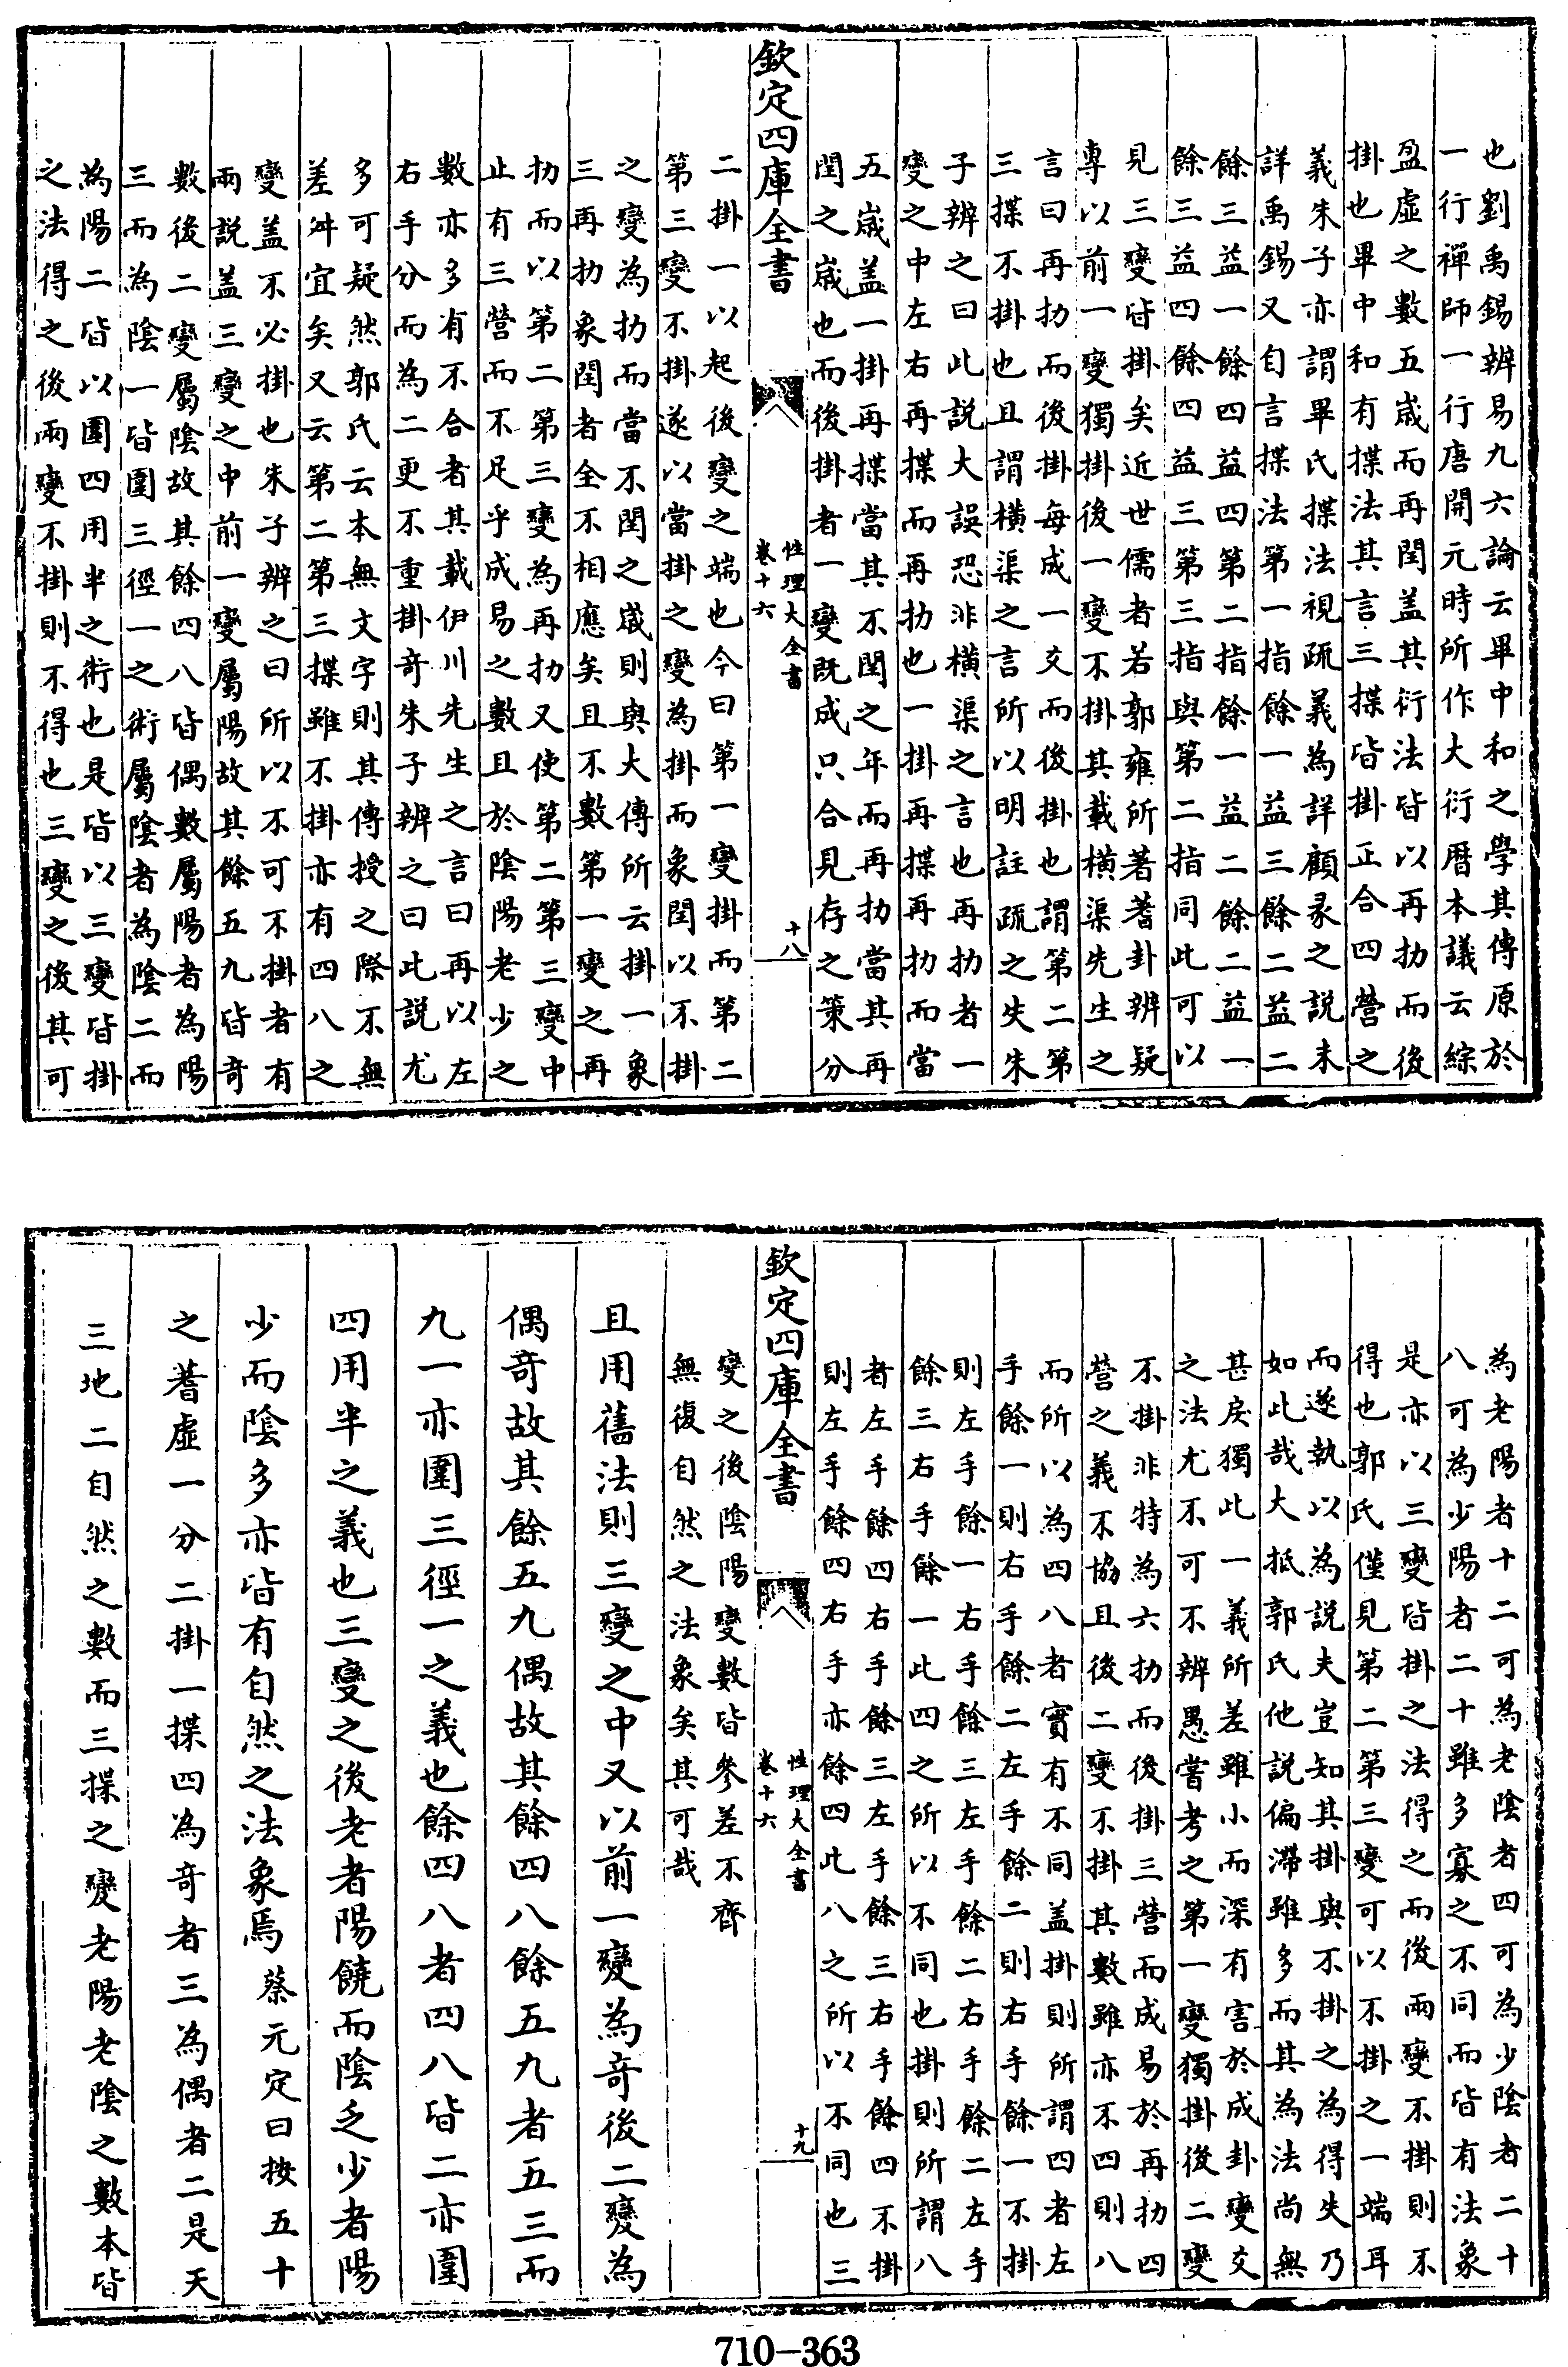 也劉禹錫辨易九六論云畢中和之學其傳原於
一行禪師一行唐開元時所作大衍曆本議云綜
盈虛之數五嵗而再閏盖其衍法皆以再扐而後
掛也畢中和有揲法其言三揲皆掛正合四營之
義朱子亦謂畢氏揲法視疏義為詳顧彖之説未
詳禹錫又自言揲法第一指餘一益三餘二益二
餘三益一餘四益四第二指餘一益二餘二益一
餘三益四餘四益三第三指與第二指同此可以
見三變皆掛矣近世儒者若郭雍所著蓍卦辨疑
專以前一變獨掛後一變不掛其載橫渠先生之
言曰再扐而後掛每成一爻而後掛也謂第二第
三揲不掛也且謂橫渠之言所以明註疏之失朱
子辨之曰此説大誤恐非橫渠之言也再扐者一
變之中左右再揲而再扐也一掛再揲再扐而當
五嵗盖一掛再揲當其不閏之年而再扐當其再
閏之嵗也而後掛者一變既成只合見存之策分
欽定四庫全書
性理大全書
卷十六
十八
二掛一以起後變之端也今曰第一變掛而第二
第三變不掛遂以當掛之變為掛而象閏以不掛
之變為扐而當不閏之嵗則與大傳所云掛一象
三再扐象閏者全不相應矣且不數第一變之再
扐而以第二第三變為再扐又使第二第三變中
止有三營而不足乎成易之數且於陰陽老少之
數亦多有不合者其載伊川先生之言曰再以左
右手分而為二更不重掛奇朱子辨之曰此説尤
多可疑然郭氏云本無文字則其傳授之際不無
差舛宜矣又云第二第三揲雖不掛亦有四八之
變盖不必掛也朱子辨之曰所以不可不掛者有
兩説盖三變之中前一變屬陽故其餘五九皆奇
數後二變屬陰故其餘四八皆偶數屬陽者為陽
三而為陰一皆圍三徑一之術屬陰者為陰二而
為陽二皆以圍四用半之術也是皆以三變皆掛
之法得之後兩變不掛則不得也三變之後其可
為老陽者十二可為老陰者四可為少陰者二十
八可為少陽者二十雖多寡之不同而皆有法象
是亦以三變皆掛之法得之而後兩變不掛則不
得也郭氏僅見第二第三變可以不掛之一端耳
而遂執以為説夫豈知其掛與不掛之為得失乃
如此哉大抵郭氏他説偏滯雖多而其為法尚無
甚戾獨此一義所差雖小而深有害於成卦變爻
之法尤不可不辨愚嘗考之第一變獨掛後二變
不掛非特為六扐而後掛三營而成易於再扐四
營之義不協且後二變不掛其數雖亦不四則八
而所以為四八者實有不同盖掛則所謂四者左
手餘一則右手餘二左手餘二則右手餘一不掛
則左手餘一右手餘三左手餘二右手餘二左手
餘三右手餘一此四之所以不同也掛則所謂八
者左手餘四右手餘三左手餘三右手餘四不掛
則左手餘四右手亦餘四此八之所以不同也三
欽定四庫全書
性理大全書
卷十六
十九
變之後陰陽變數皆參差不齊
無復自然之法象矣其可哉
且用舊法則三變之中又以前一變為奇後二變為
偶奇故其餘五九偶故其餘四八餘五九者五三而
九一亦圍三徑一之義也餘四八者四八皆二亦圍
四用半之義也三變之後老者陽饒而陰乏少者陽
少而陰多亦皆有自然之法象焉 蔡元定曰按五十
之蓍虛一分二掛一揲四為奇者三為偶者二是天
三地二自然之數而三揲之變老陽老陰之數本皆
710-363